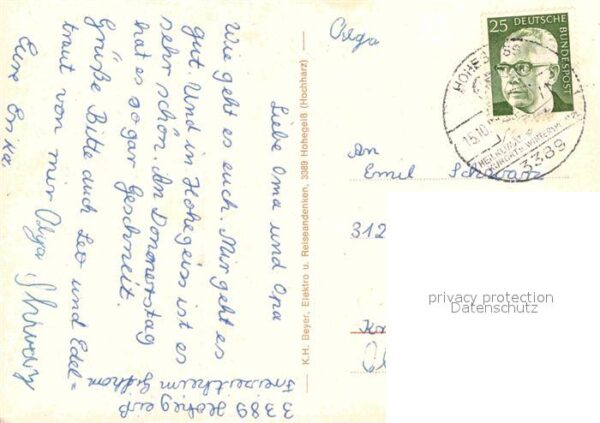 3389 Hohegeiß
Freizeitheim
Liebe Oma und Opa
Wie geht es euch. Mir geht es
gut. Und in Hohegeiss ist es
sehr schön. An Donnerstag
hat es sogar Geschneit.
Grüße Bitte auch Leo und Edel=
traut von mir Olga
Eure
K.H. Beyer, Elektro u. Reiseandenken, 3389 Hohegeiß (Hochharz)
Olga
25 DEUTSCHE BUNDESPOST
15.10
3389
An
Emil Schwarz
312
privacy protection
Datenschutz